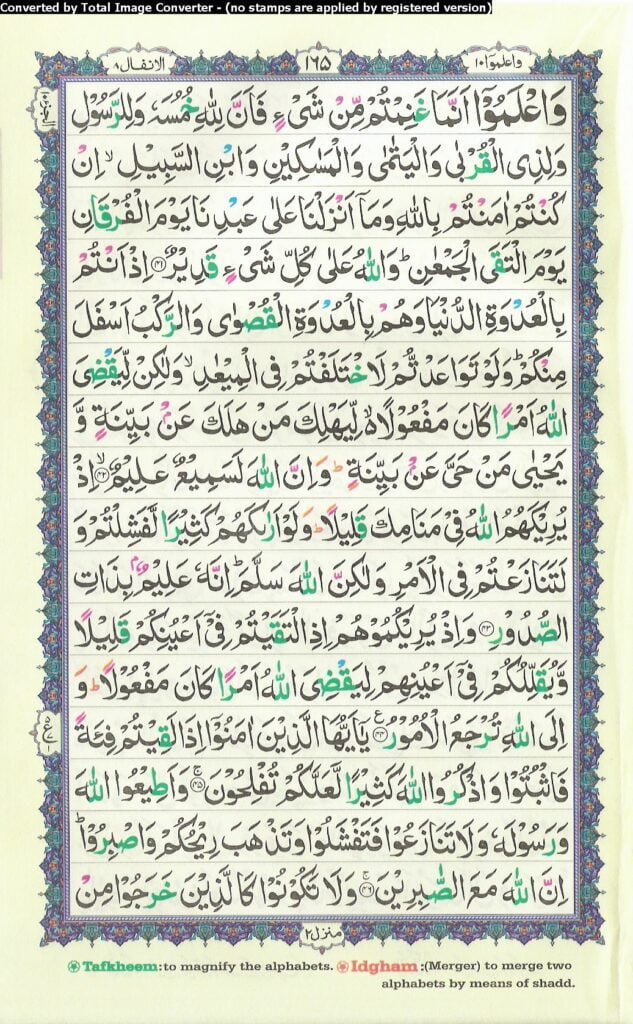 Converted by Total Image Converter - (no stamps are applied by registered version)
واعلموا ١٠
١٦٥
الانفال ٨
وَاعْلَمُوْۤا اَنَّمَا غَنِمْتُمْ مِّنْ شَیْءٍ فَاَنَّ لِلّٰهِ خُمُسَهٗ وَلِلرَّسُوْلِ
وَلِذِی الْقُرْبٰی وَالْیَتٰمٰی وَالْمَسٰكِیْنِ وَابْنِ السَّبِیْلِ ۙ اِنْ
كُنْتُمْ اٰمَنْتُمْ بِاللّٰهِ وَمَاۤ اَنْزَلْنَا عَلٰی عَبْدِنَا یَوْمَ الْفُرْقَانِ
یَوْمَ الْتَقَی الْجَمْعٰنِ ؕ وَاللّٰهُ عَلٰی كُلِّ شَیْءٍ قَدِیْرٌ ﴿۴۱﴾ اِذْ اَنْتُمْ
بِالْعُدْوَةِ الدُّنْیَا وَهُمْ بِالْعُدْوَةِ الْقُصْوٰی وَالرَّكْبُ اَسْفَلَ
مِنْكُمْ ؕ وَلَوْ تَوَاعَدْتُّمْ لَاخْتَلَفْتُمْ فِی الْمِیْعٰدِ ۙ وَلٰكِنْ لِّیَقْضِیَ
اللّٰهُ اَمْرًا كَانَ مَفْعُوْلًا ۙ۬ لِّیَهْلِكَ مَنْ هَلَكَ عَنْۢ بَیِّنَةٍ وَّ
یَحْیٰی مَنْ حَیَّ عَنْۢ بَیِّنَةٍ ؕ وَاِنَّ اللّٰهَ لَسَمِیْعٌ عَلِیْمٌ ﴿۴۲﴾ۙ اِذْ
یُرِیْكَهُمُ اللّٰهُ فِیْ مَنَامِكَ قَلِیْلًا ؕ وَلَوْ اَرٰىكَهُمْ كَثِیْرًا لَّفَشِلْتُمْ وَ
لَتَنَازَعْتُمْ فِی الْاَمْرِ وَلٰكِنَّ اللّٰهَ سَلَّمَ ؕ اِنَّهٗ عَلِیْمٌۢ بِذَاتِ
الصُّدُوْرِ ﴿۴۳﴾ وَاِذْ یُرِیْكُمُوْهُمْ اِذِ الْتَقَیْتُمْ فِیْۤ اَعْیُنِكُمْ قَلِیْلًا
وَّیُقَلِّلُكُمْ فِیْۤ اَعْیُنِهِمْ لِیَقْضِیَ اللّٰهُ اَمْرًا كَانَ مَفْعُوْلًا ؕ وَ
اِلَی اللّٰهِ تُرْجَعُ الْاُمُوْرُ ﴿۴۴﴾ یٰۤاَیُّهَا الَّذِیْنَ اٰمَنُوْۤا اِذَا لَقِیْتُمْ فِئَةً
فَاثْبُتُوْا وَاذْكُرُوا اللّٰهَ كَثِیْرًا لَّعَلَّكُمْ تُفْلِحُوْنَ ﴿۴۵﴾ۚ وَاَطِیْعُوا اللّٰهَ
وَرَسُوْلَهٗ وَلَا تَنَازَعُوْا فَتَفْشَلُوْا وَتَذْهَبَ رِیْحُكُمْ وَاصْبِرُوْا ؕ
اِنَّ اللّٰهَ مَعَ الصّٰبِرِیْنَ ﴿۴۶﴾ۚ وَلَا تَكُوْنُوْا كَالَّذِیْنَ خَرَجُوْا مِنْ
منزل ٢
Tafkheem:to magnify the alphabets. Idgham:(Merger) to merge two
alphabets by means of shadd.